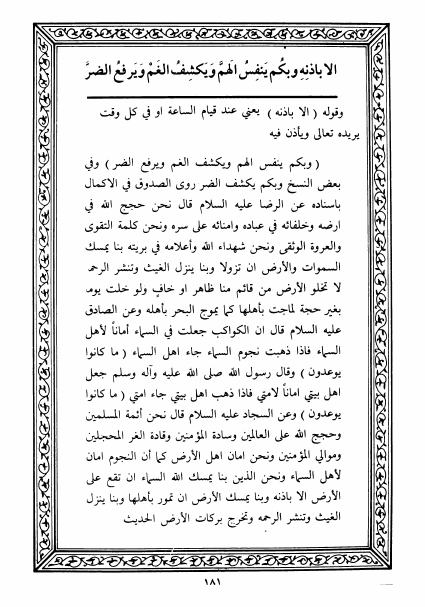 الا باذنِهِ وبكُم ينَفِسُ الهمَّ وَيكشِفُ الغَمَّ وَيَرفَعُ الضرَّ
وقوله ( الا باذنه ) يعني عند قيام الساعة او في كل وقت
يريده تعالى ويأذن فيه
( وبكم ينفس الهم ويكشف الغم ويرفع الضر ) وفي
بعض النسخ وبكم يكشف الضر روى الصدوق في الاكمال
باسناده عن الرضا عليه السلام قال نحن حجج الله في
ارضه وخلفائه في عباده وامنائه على سره ونحن كلمة التقوى
والعروة الوثقى ونحن شهداء الله وأعلامه في بريته بنا يمسك
السموات والأرض ان تزولا وبنا ينزل الغيث وتنشر الرحمـ
لا تخلو الأرض من قائم منا ظاهر او خافٍ ولو خلت يومـ
بغير حجة لماجت بأهلها كما يموج البحر بأهله وعن الصادق
عليه السلام قال ان الكواكب جعلت في السماء أماناً لأهل
السماء فاذا ذهبت نجوم السماء جاء اهل السماء ( ما كانوا
يوعدون ) وقال رسول الله صلى الله عليه وآله وسلم جعل
اهل بيتي اماناً لامتي فاذا ذهب اهل بيتي جاء امتي ( ما كانوا
يوعدون ) وعن السجاد عليه السلام قال نحن أئمة المسلمين
وحجج الله على العالمين وسادة المؤمنين وقادة الغر المحجلين
وموالي المؤمنين ونحن امان اهل الأرض كما أن النجوم امان
لأهل السماء ونحن الذين بنا يمسك الله السماء ان تقع على
الأرض الا باذنه وبنا يمسك الأرض ان تمور بأهلها وبنا ينزل
الغيث وتنشر الرحمه وتخرج بركات الأرض الحديث
١٨١